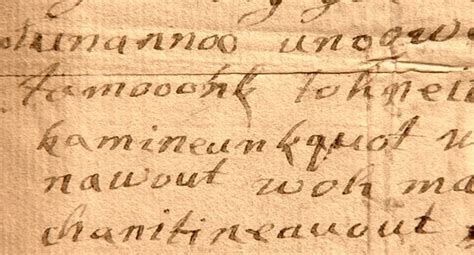 unannoo unoowa
tamooonk tohnei
kamineunkquot
nawout woh ma
chanitineauout